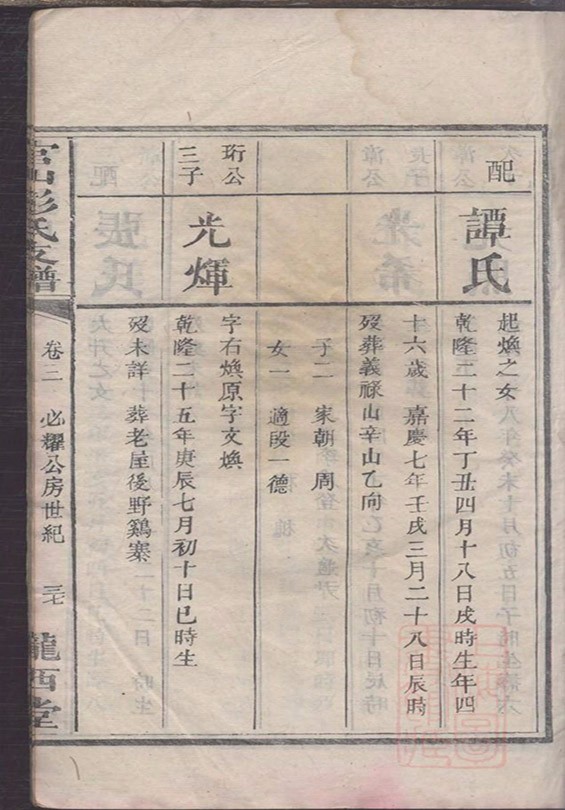 配
譚氏
起煥之女
乾隆二十二年丁丑四月十八日戌時生年四
十六歲嘉慶七年壬戌三月二十八日辰時
歿葬義祿山辛山乙向
子二 家朝 周
女一 適段一德
珩公
三子
光煇
字右煥原字文煥
乾隆二十五年庚辰七月初十日巳時生
歿未詳 葬老屋後野鷄寨
彭氏支譜
卷三 必耀公房世紀 三七 隴西堂